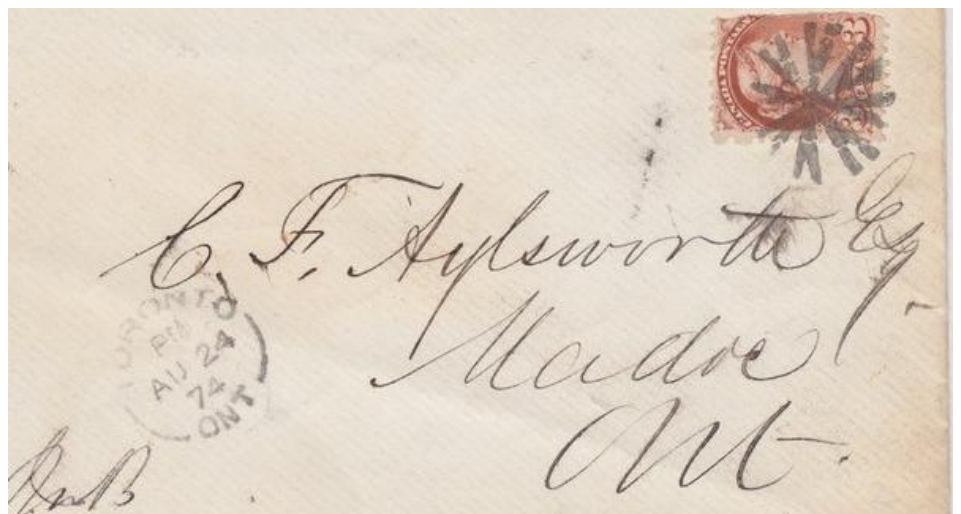 C. F. Aylsworth Esq.
Madoc
Ont.
TORONTO
PM
AU 24
74
ONT